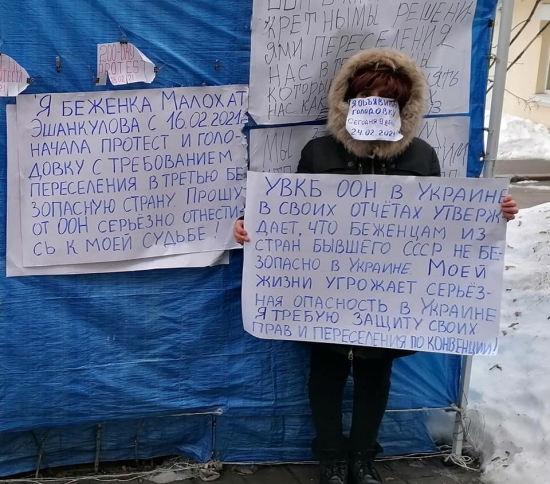 ПРОТЕСТ
Я БЕЖЕНКА МАЛОХАТ
ЭШАНКУЛОВА С 16.02.2021
НАЧАЛА ПРОТЕСТ И ГОЛО-
ДОВКУ С ТРЕБОВАНИЕМ
ПЕРЕСЕЛЕНИЯ В ТРЕТЬЮ БЕ
ЗОПАСНУЮ СТРАНУ. ПРОШУ
ОТ ООН СЕРЬЁЗНО ОТНЕСТИ
СЬ К МОЕЙ СУДЬБЕ!
ЖРЕТНЫМЫ РЕШЕНИ
ЯМИ ПЕРЕСЕЛЕНИЯ
НАС В
КОТОРЫ
НАС
МЫ
Я ОБЪЯВИЛА
ГОЛОДОВКУ
СЕГОДНЯ 9 ДЕНЬ
24.02.2021
УВКБ ООН В УКРАИНЕ
В СВОИХ ОТЧЁТАХ УТВЕРЖ
ДАЕТ, ЧТО БЕЖЕНЦАМ ИЗ
СТРАН БЫВШЕГО СССР НЕ БЕ-
ЗОПАСНО В УКРАИНЕ. МОЕЙ
ЖИЗНИ УГРОЖАЕТ СЕРЬЁЗ-
НАЯ ОПАСНОСТЬ В УКРАИНЕ
Я ТРЕБУЮ ЗАЩИТУ СВОИХ
ПРАВ И ПЕРЕСЕЛЕНИЯ ПО КОНВЕНЦИИ!